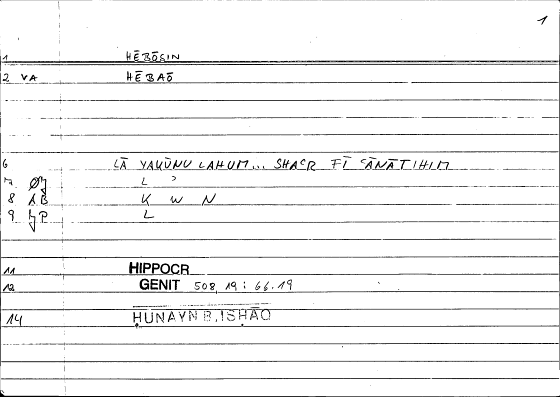 1
1 HĒBŌSIN
2 VA HĒBAŌ
6 LĀ YAKŪNU LAHUM... SHAʿR FĪ ʿĀNĀTIHIM
7 L ʾ
8 AB K W N
9 L
11 HIPPOCR
12 GENIT 508,19 : 66.19
14 ḤUNAYN B. ISḤĀQ